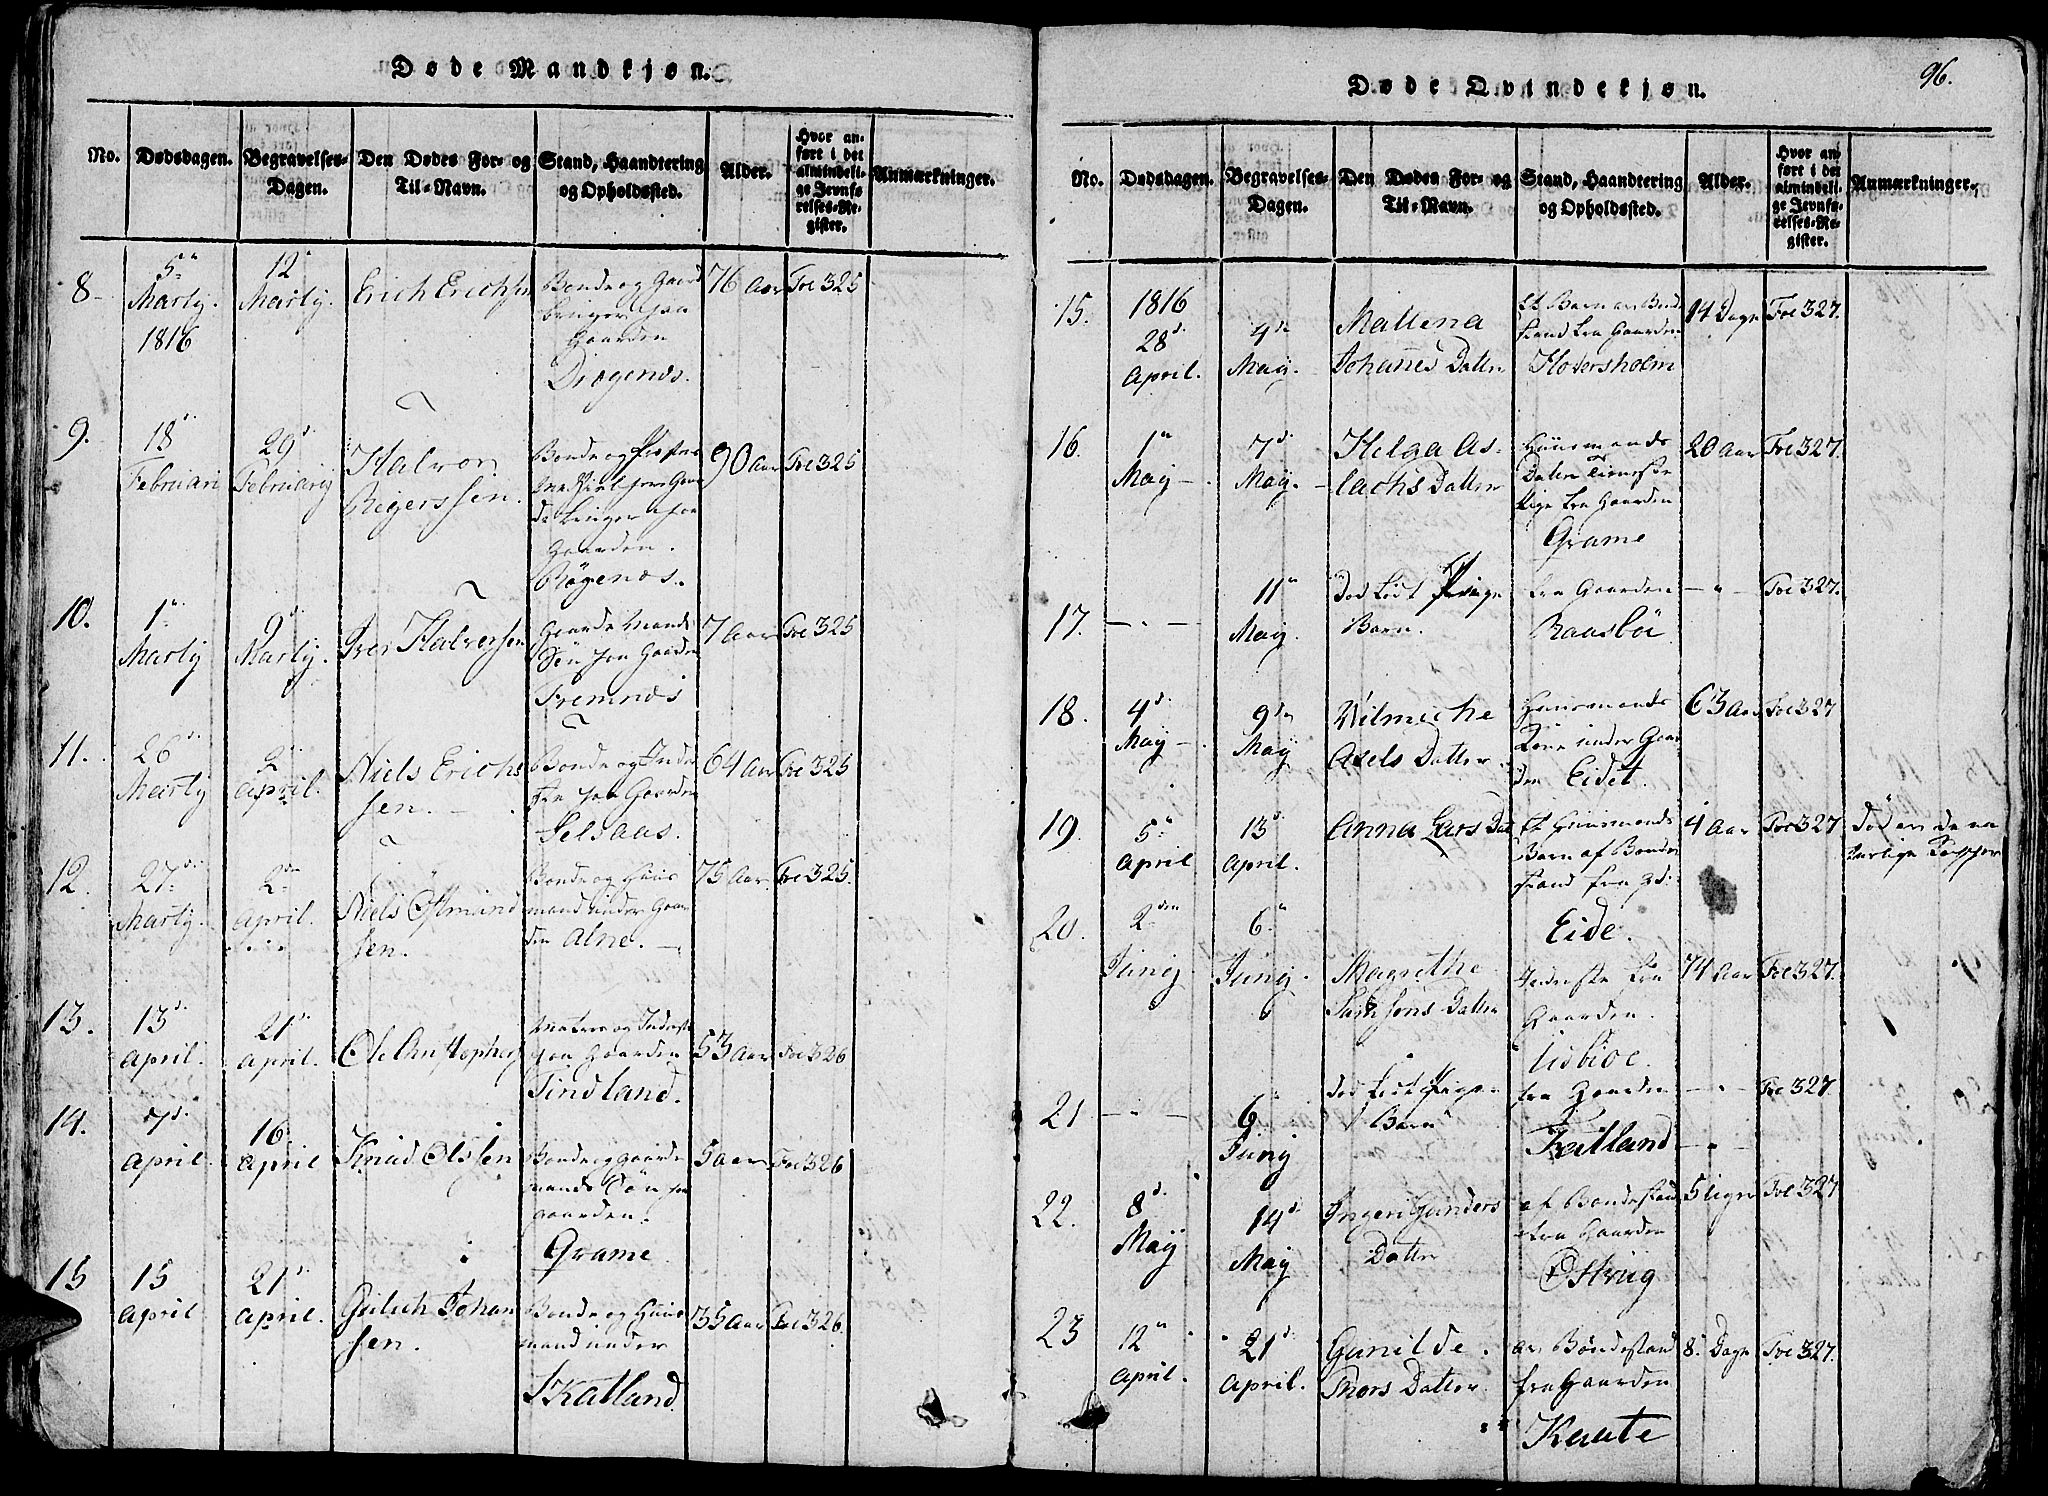 Døde Mandkjøn.
No. Dødsdagen. Begravelses-Dagen. Den Dødes For- og Til-Navn. Stand, Haandtering og Opholdssted. Alder. Hvor anført i det almindelige Jevnførelses-Register. Anmærkninger.
8
5te
Martij.
1816
12te
Martij.
Erich Erichsen
Bonde og Gaard
bruger paa
Gaarden
76 Aar
Fol 325
9.
18d
Februari
29d
Februarij
Halvor
Bonde og
Gaarden.
90 Aar
Fol 325
10.
1te
Martij
9d
Martij.
Iver Halversen
Gaardemands
Søn paa Gaarden
Tremnes
7 Aar
Fol 325
11.
26d
Martij
2
April.
Niels Erich
sen.
Bonde og Inder
ste paa Gaarden
Selaas.
64 Aar
Fol 325
12.
27de
Martij.
2den
April.
Niels Ostmund
sen.
Bonde og Huus
mand under Gaar
den Alne.
75 Aar
Fol 325.
13.
13d
April.
21d
April.
Ole
og Inderste
paa Gaarden
Tindland.
53 Aar
Fol 326
14.
7d
April.
16
April
Knud Olssen
Bonde og gaarde
mands Søn paa
gaarden.
Grame
5 aar
Fol 326
15
15
April
21d
April.
Gulich Johan
sen.
Bonde og Huus
mand under
Skatland.
35 Aar
Fol 326.
96.
Døde Qvindekjøn.
No. Dødsdagen. Begravelses-Dagen. Den Dødes For- og Til-Navn. Stand, Haandtering og Opholdssted. Alder. Hvor anført i det almindelige Jevnførelses-Register. Anmærkninger.
15.
1816
28d
April.
4de
May.
Mallena
Johannes Datter
Et Barn av Bonde
stand fra Gaarden
Hoversholm
14 Dage
Fol 327.
16.
1te
May
7d
May.
Helga As-
lachs Datter
Huusmands
Datter Tieneste
Pige fra Gaarden
Grame
20 aar
Fol 327.
17.
11te
May.
Død født Pige
Barn.
fra Gaarden
Raasbøe
Fol 327.
18.
4d
May
9de
May
Wilmiche
Axels Datter
Huusmands
Kone under Gaar
den Eidet.
63 Aar
Fol 327
19
5te
April
13d
April.
Anna Lars Dat
Et Huusmands
Barn af Bonde
stand fra Gd:
Eide.
4 Aar
Fol 327
Død av de na
turlige Kopper
20.
2den
Junij
6te
Junij.
Magrethe
Datter
Inderste fra
Gaarden.
Usbioe.
74 Aar
Fol 327.
21
6
Junij
død født Pige
Barn
fra Gaarden
Fol 327
22.
8d
May
14d
May
Ingeri Gunders
Datter
af Bondestand
fra Gaarden
5 Uger
Fol 327
23
12te
April.
21d
April.
Gunilde
Thors Datter
av Bøndestand
fra Gaarden
Kaate
8. Dage
Fol 327.